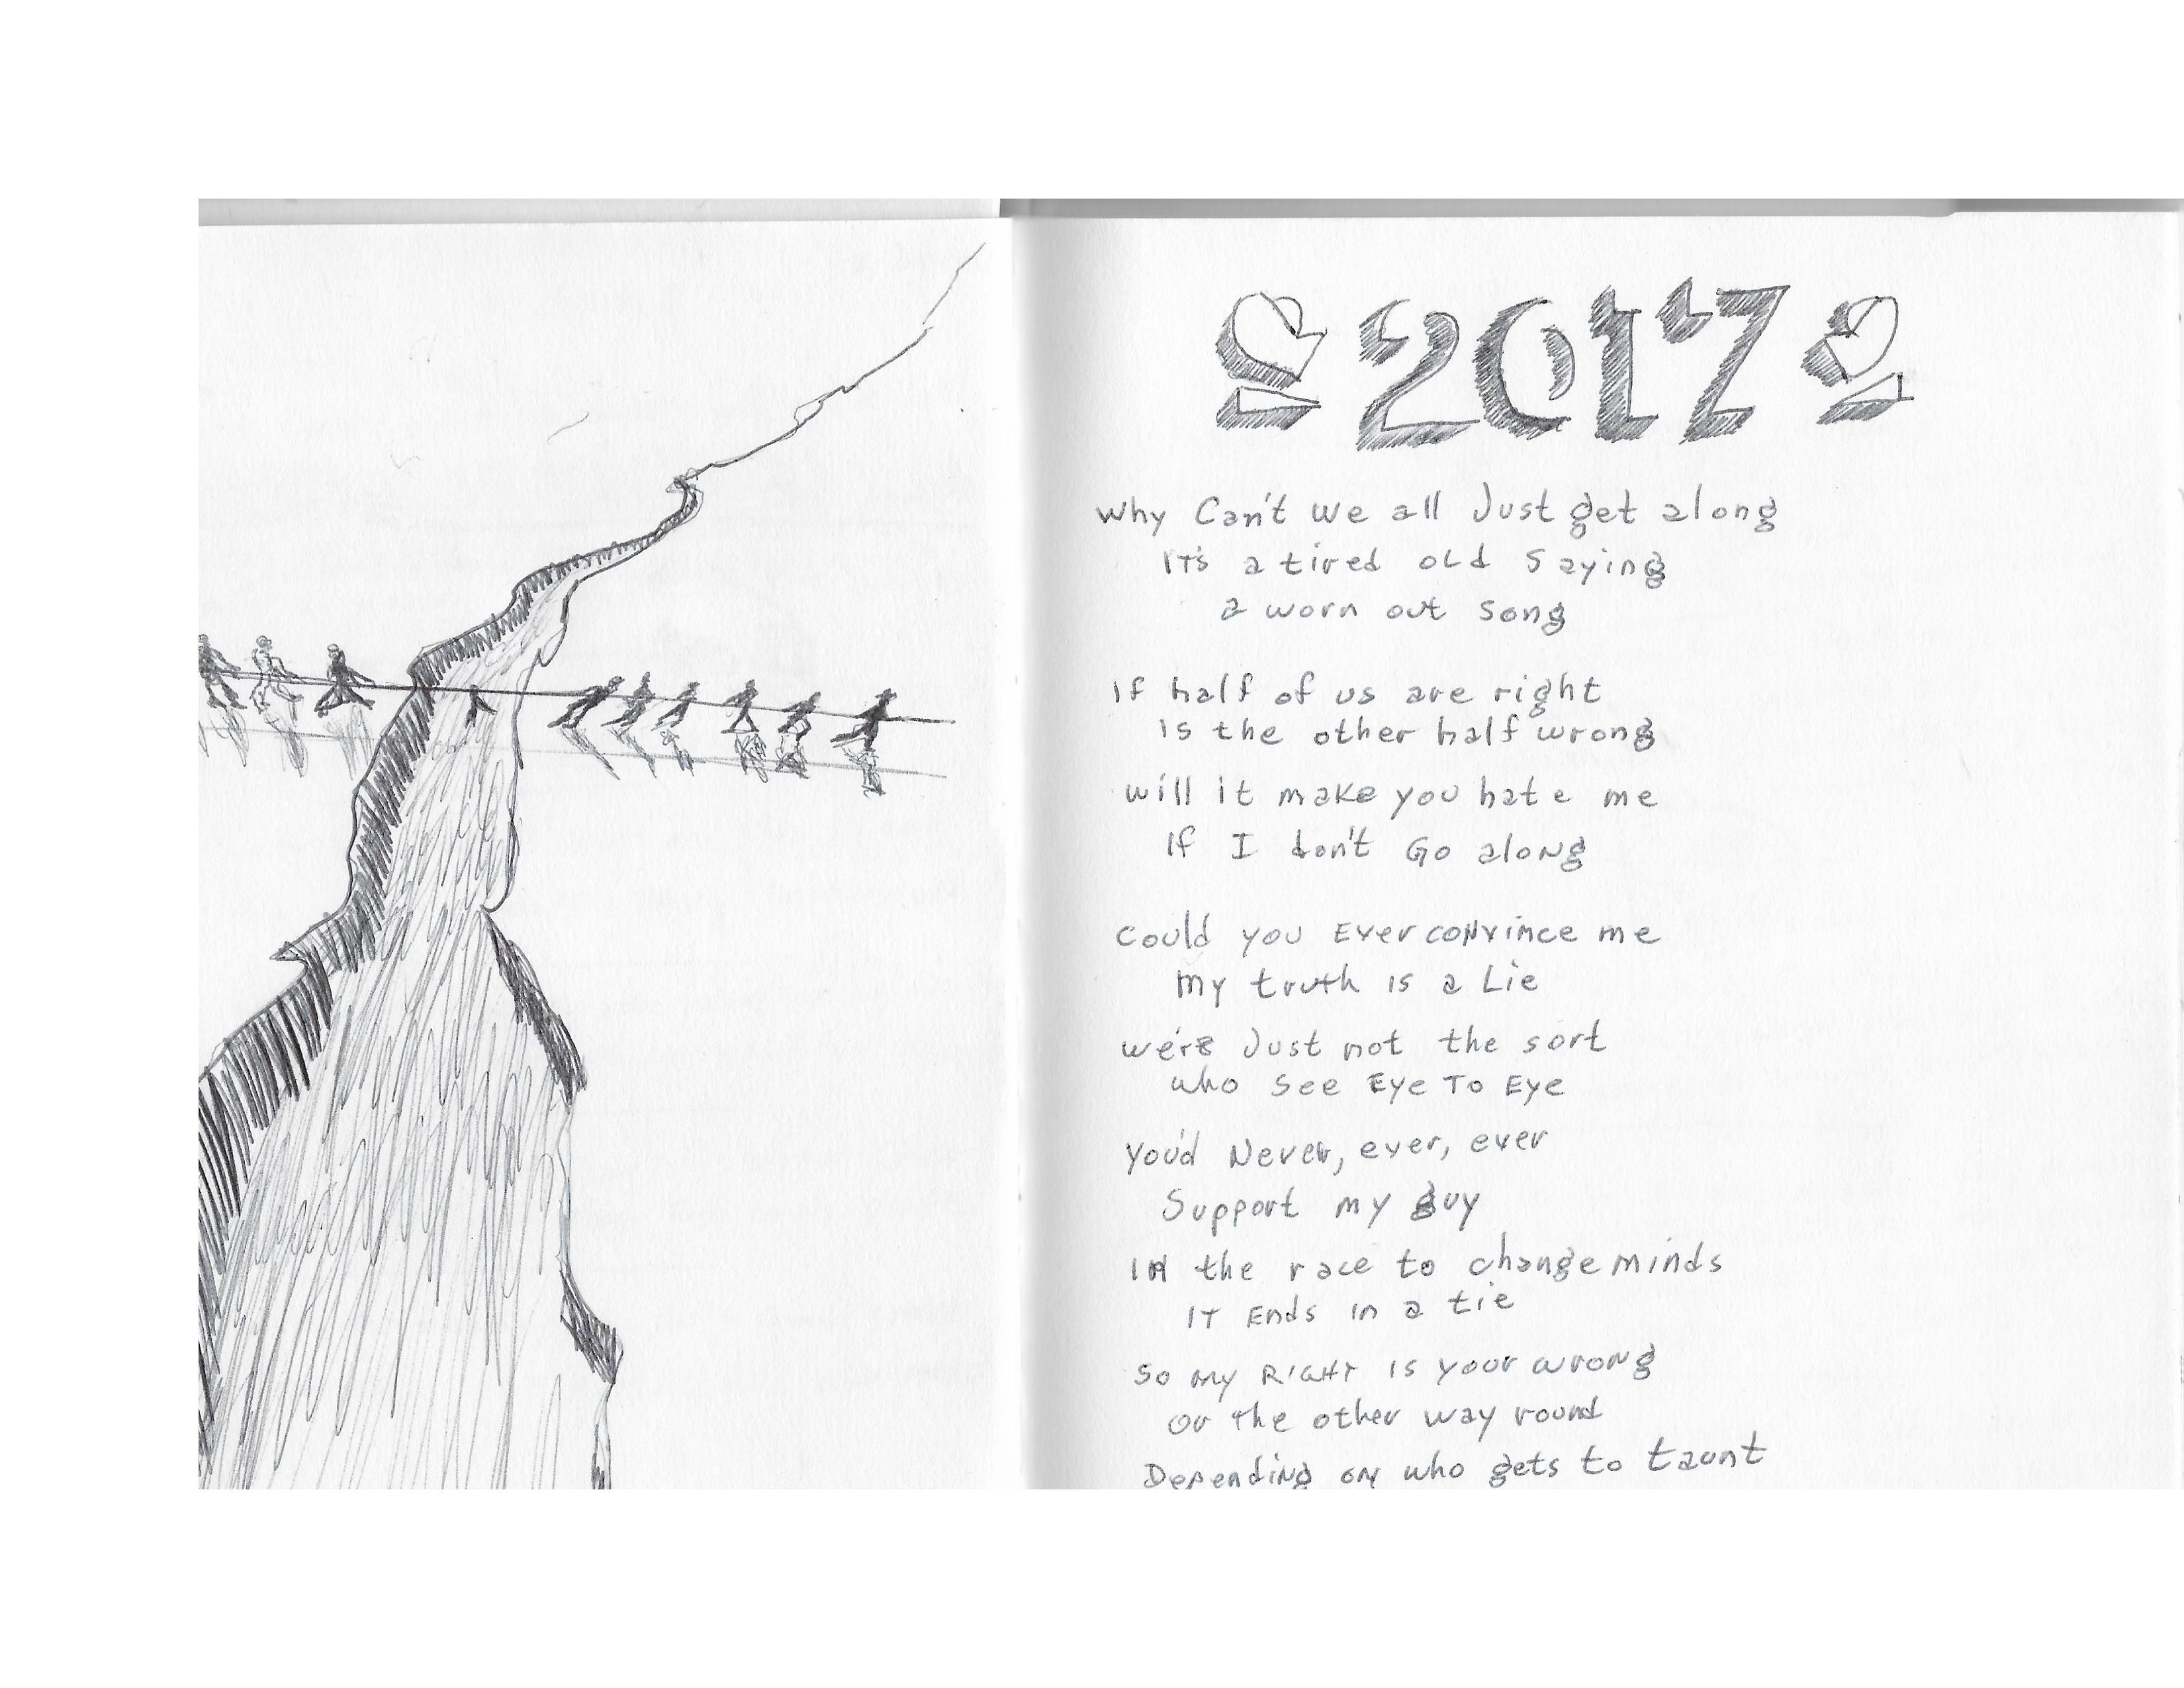 2017
Why Can't we all Just get along
IT's a tired old Saying
a worn out Song
If half of us are right
is the other half wrong
will it make you hate me
If I don't Go along
Could you Ever convince me
my truth is a Lie
we're Just not the sort
who See Eye To Eye
You'd Never, ever, ever
Support my guy
In the race to change minds
IT Ends in a tie
So my RIGHT is your wrong
or the other way round
Depending on who gets to taunt